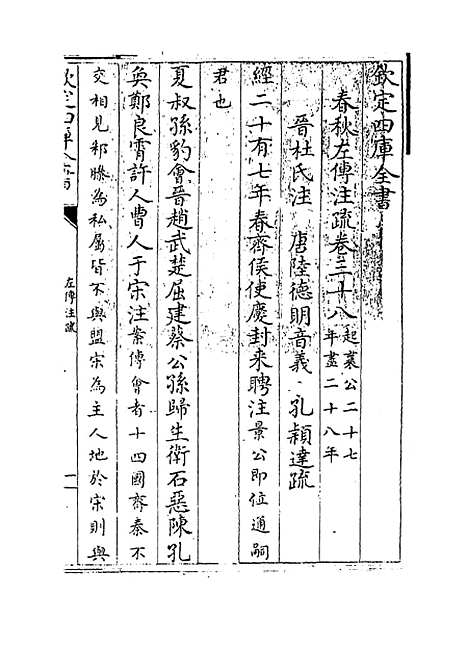 欽定四庫全書
春秋左傳注疏卷三十八起襄公二十七年盡二十八年
晉杜氏注 唐陸德明音義 孔穎達疏
經二十有七年春齊侯使慶封來聘注景公即位通嗣
君也
夏叔孫豹會晉趙武楚屈建蔡公孫歸生衛石惡陳孔
奐鄭良霄許人曹人于宋注案傳會者十四國齊秦不
交相見邾滕為私屬皆不與盟宋為主人地於宋則與
欽定四庫全書
左傳注疏
一